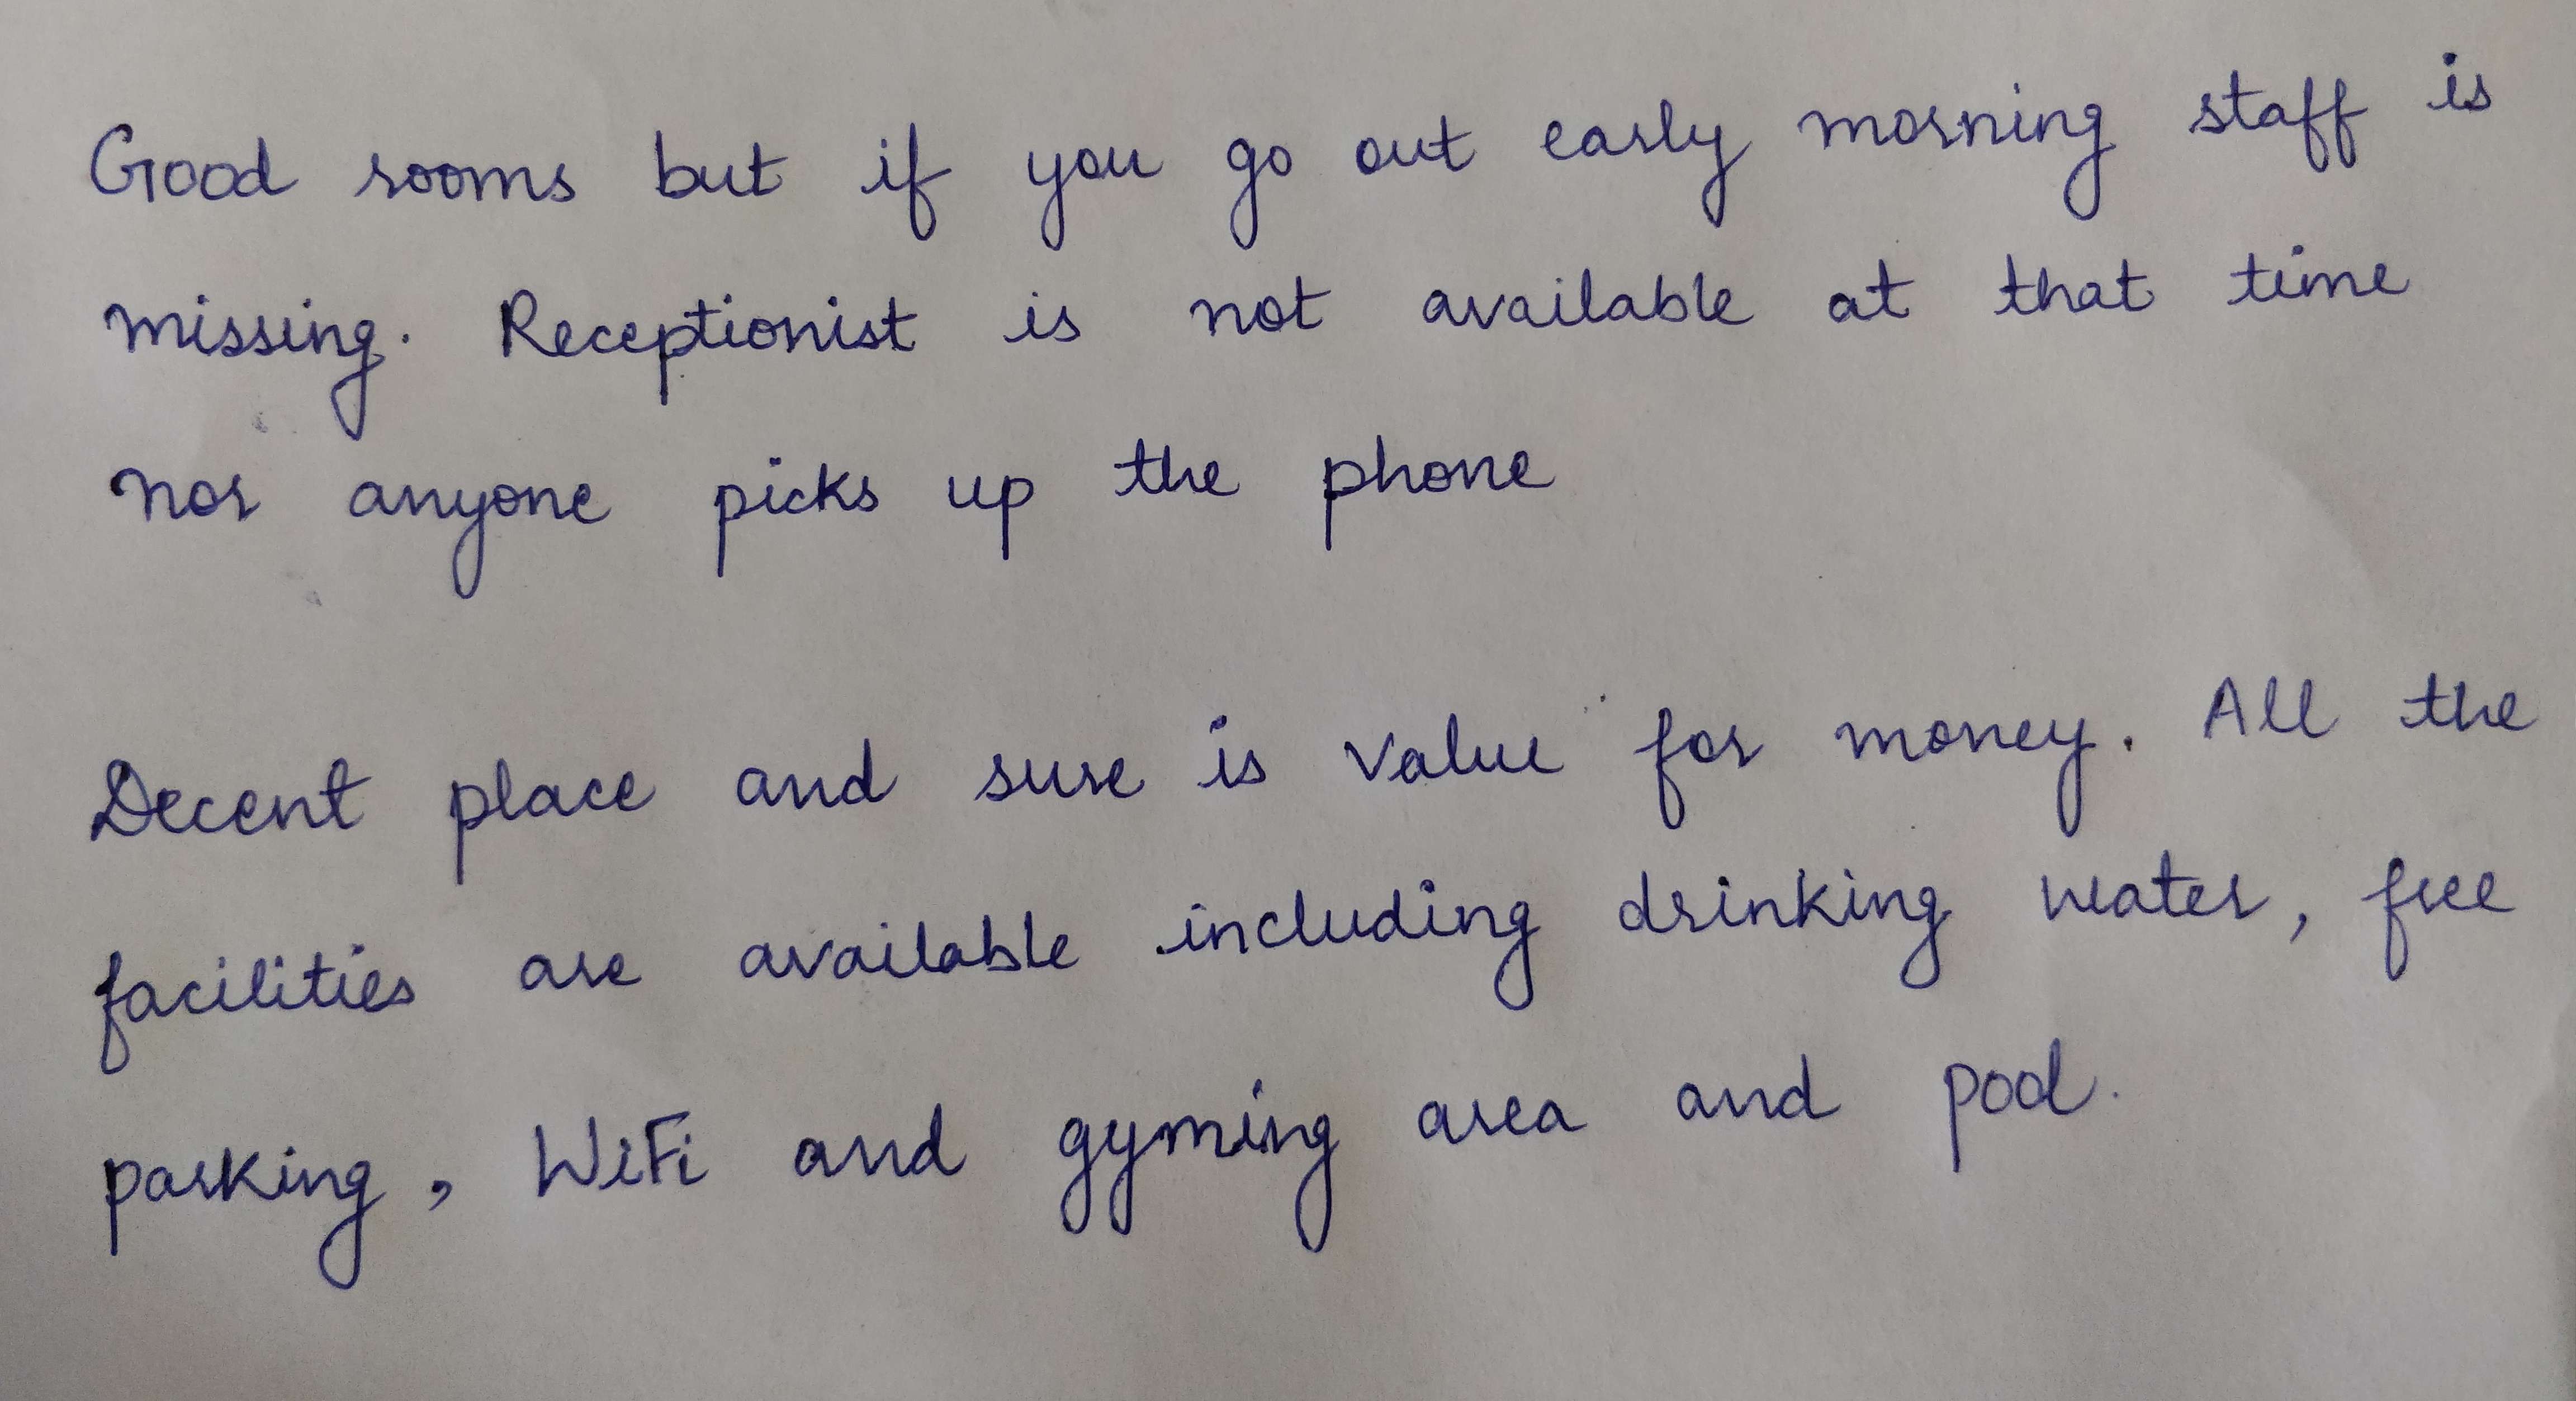 Good rooms but if you go out early morning staff is
missing. Receptionist is not available at that time
nor anyone picks up the phone
Decent place and sure is value for money. All the
facilities are available including drinking water, free
parking, WiFi and gyming area and pool.